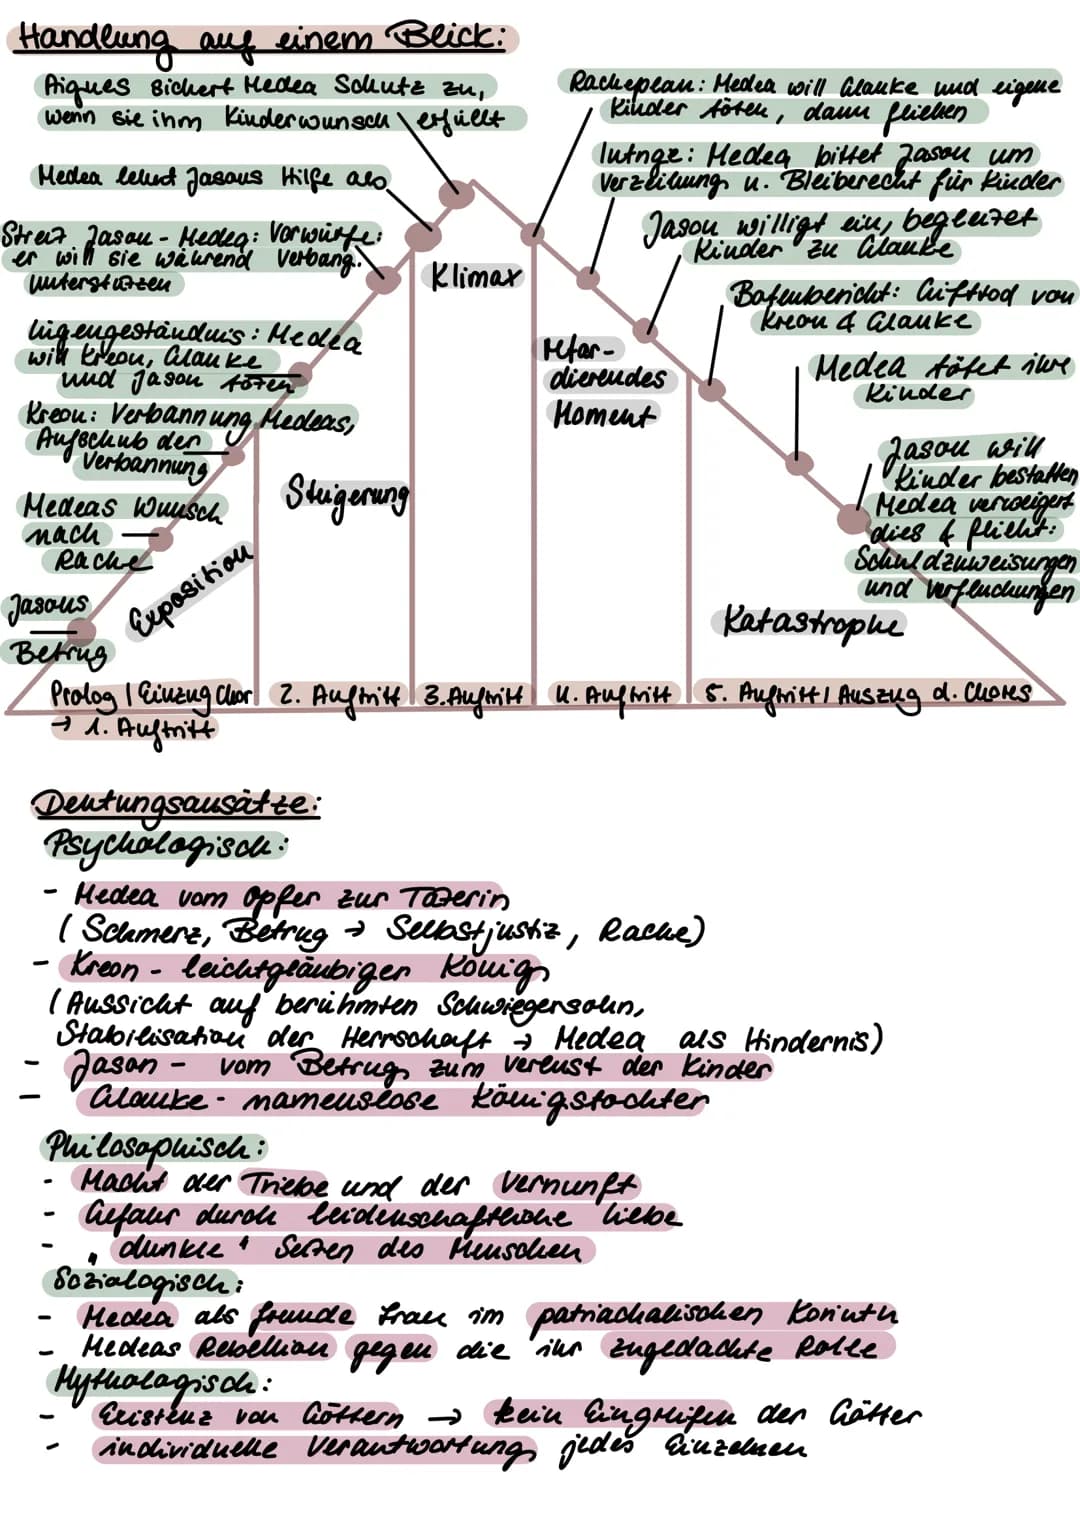 Handlung auf einem Blick:
Aigeus sichert Medea Schutz zu,
wenn sie ihm Kinderwunsch erfüllt
Medea lehnt Jasons Hilfe ab
Streit Jason - Medea: Vorwürfe:
er will sie während Verbang.
unterstützen
Lügengeständnis: Medea
will Kreon, Glauke
und Jason töten
Kreon: Verbannung Medeas,
Aufschub der
Verbannung
Medeas Wunsch
nach
Rache
Jasons
Betrug
Racheplan: Medea will Glauke und eigene
Kinder töten, dann fliehen
Intrige: Medea bittet Jason um
Verzeihung u. Bleiberecht für Kinder
Jason willigt ein, begleitet
Kinder zu Glauke
Botenbericht: Gifttod von
Kreon & Glauke
Medea tötet ihre
Kinder
Jason will
Kinder bestatten
Medea verweigert
dies & flieht:
Schuldzuweisungen
und Verfluchungen
Exposition
Steigerung
Klimax
retar-
dierendes
Moment
Katastrophe
Prolog | Einzug Chor
→ 1. Auftritt
2. Auftritt
3. Auftritt
4. Auftritt
5. Auftritt / Auszug d. Chores
Deutungsansätze:
Psychologisch:
- Medea vom Opfer zur Täterin
( Schmerz, Betrug → Selbstjustiz, Rache)
- Kreon - leichtgläubiger König
( Aussicht auf berühmten Schwiegersohn,
Stabilisation der Herrschaft → Medea als Hindernis)
- Jason - vom Betrug zum Verlust der Kinder
- Glauke - namenslose Königstochter
Philosophisch:
- Macht der Triebe und der Vernunft
- Gefahr durch leidenschaftliche Liebe
- „dunkle" Seiten des Menschen
Soziologisch:
- Medea als fremde Frau im patriachalischen Korinth
- Medeas Rebellion gegen die ihr zugedachte Rolle
Mythologisch:
- Existenz von Göttern → kein Eingreifen der Götter
- individuelle Verantwortung jedes Einzelnen